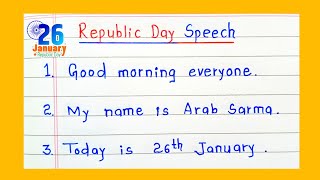 26
January
Republic Day
Republic Day Speech
1. Good morning everyone.
2. My name is Arab Sarma.
3. Today is 26th January.